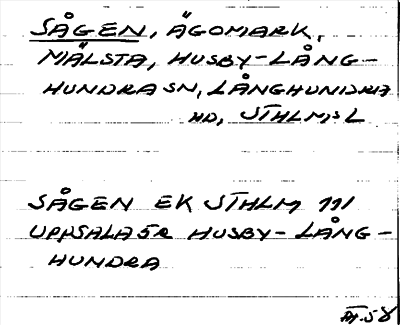 SÅGEN, ÄGOMARK,
MÄLSTA, HUSBY-LÅNG-
HUNDRA SN, LÅNGHUNDRA
HD, STHLMS L
SÅGEN EK STHLM 111
UPPSALA 5R HUSBY-LÅNG-
HUNDRA